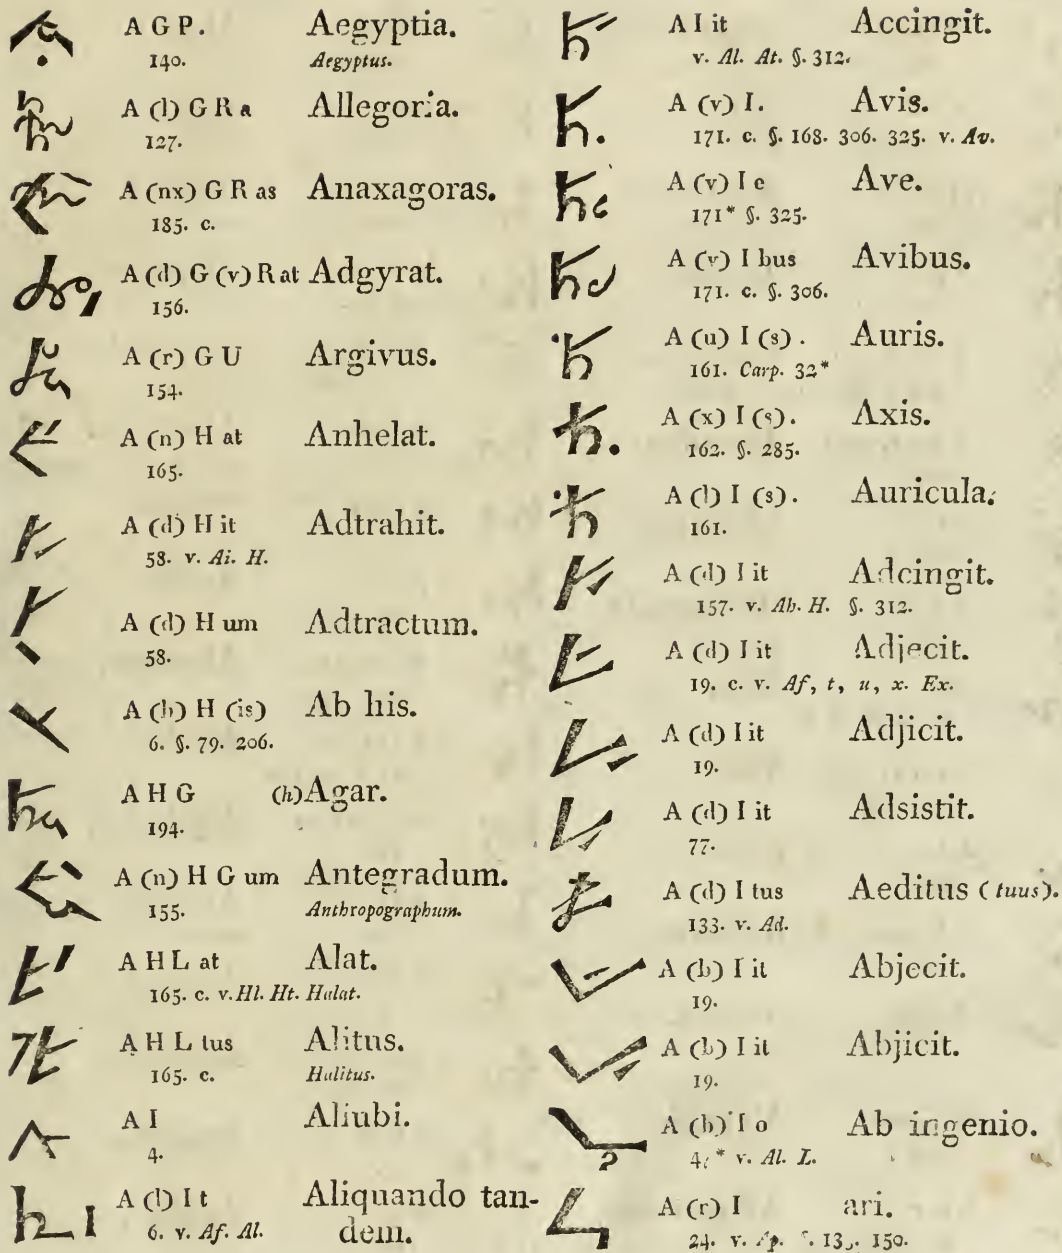 A G P. Aegyptia.
140. Aegyptus.
A (l) G R a Allegoria.
127.
A (nx) G R as Anaxagoras.
185. c.
A (d) G (v) R at Adgyrat.
156.
A (r) G U Argivus.
154.
A (n) H at Anhelat.
165.
A (d) H it Adtrahit.
58. v. Ai. H.
A (d) H um Adtractum.
58.
A (b) H (is) Ab his.
6. §. 79. 206.
A H G (h)Agar.
194.
A (n) H G um Antegradum.
155. Anthropographum.
A H L at Alat.
165. c. v. Hl. Ht. Halat.
A H L tus Alitus.
165. c. Halitus.
A I Aliubi.
4.
A (l) I t Aliquando tan-
6. v. Af. Al. dem.
A I it Accingit.
v. Al. At. §. 312.
A (v) I. Avis.
171. c. §. 168. 306. 325. v. Av.
A (v) I e Ave.
171* §. 325.
A (v) I bus Avibus.
171. c. §. 306.
A (u) I (s). Auris.
161. Carp. 32*
A (x) I (s). Axis.
162. §. 285.
A (l) I (s). Auricula.
161.
A (d) I it Adcingit.
157. v. Ab. H. §. 312.
A (d) I it Adjecit.
19. c. v. Af, t, u, x. Ex.
A (d) I it Adjicit.
19.
A (d) I it Adsistit.
77.
A (d) I tus Aeditus (tuus).
133. v. Ad.
A (b) I it Abjecit.
19.
A (b) I it Abjicit.
19.
A (b) I o Ab ingenio.
v. Al. L.
A (r) I ari.
24. v. 150.